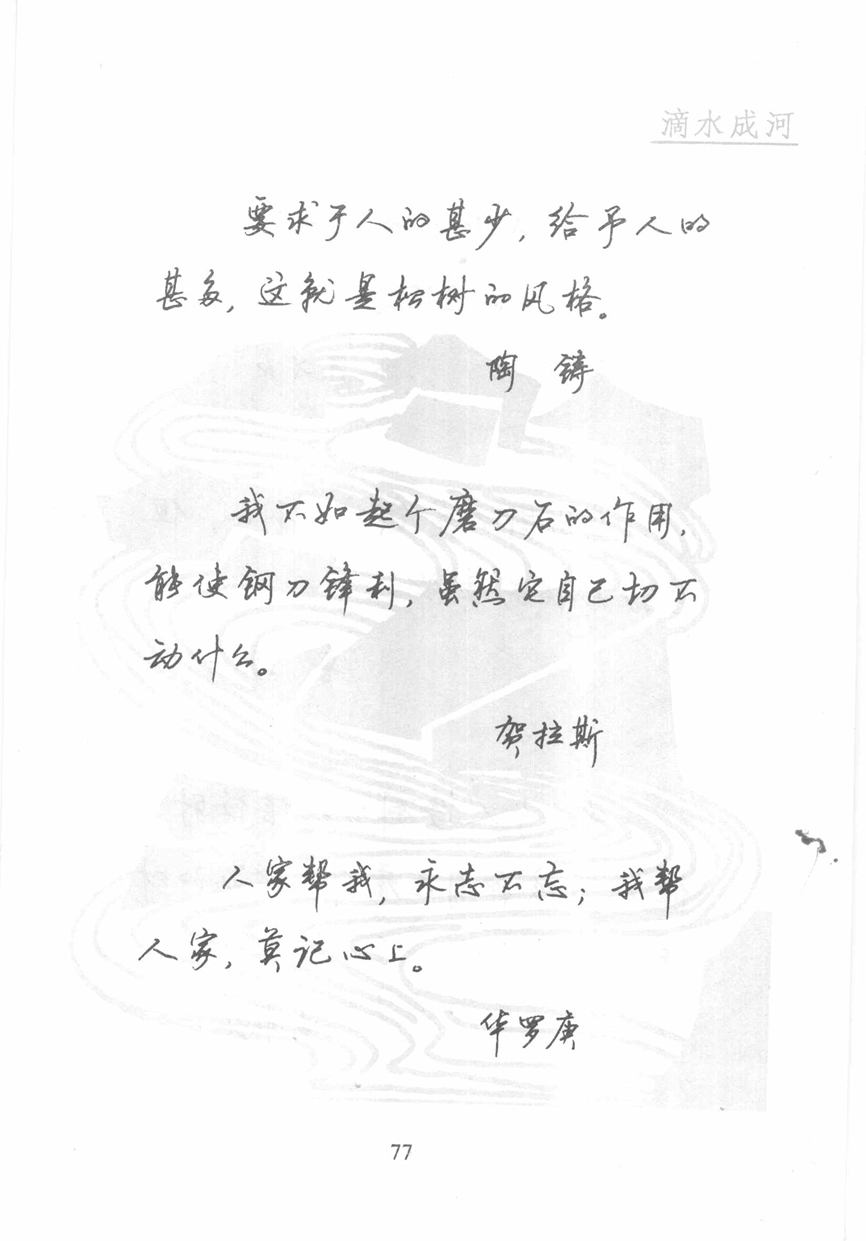 滴水成河
要求于人的甚少，给予人的
甚多，这就是松树的风格。
陶 铸
我不如起个磨刀石的作用，
能使钢刀锋利，虽然它自己切不
动什么。
贺拉斯
人家帮我，永志不忘；我帮
人家，莫记心上。
华罗庚
77